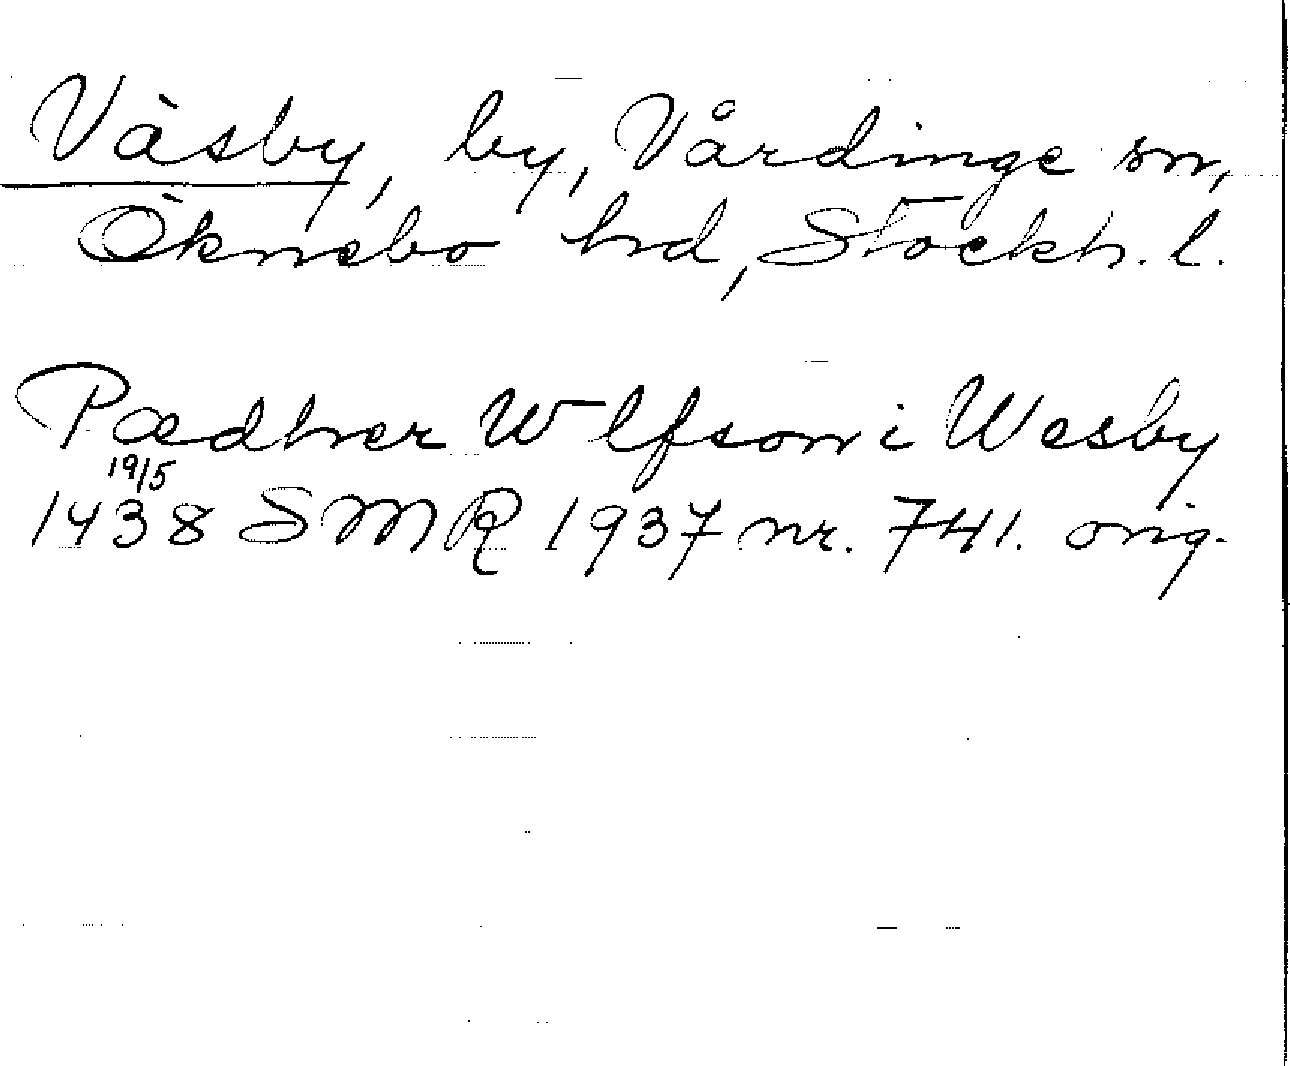 Väsby, by, Vårdinge sn,
Öknebo hd, Stockh. l.
Pædher Wlfson i Wesby
19/5
1438 SMR 1937 nr. 741. orig.